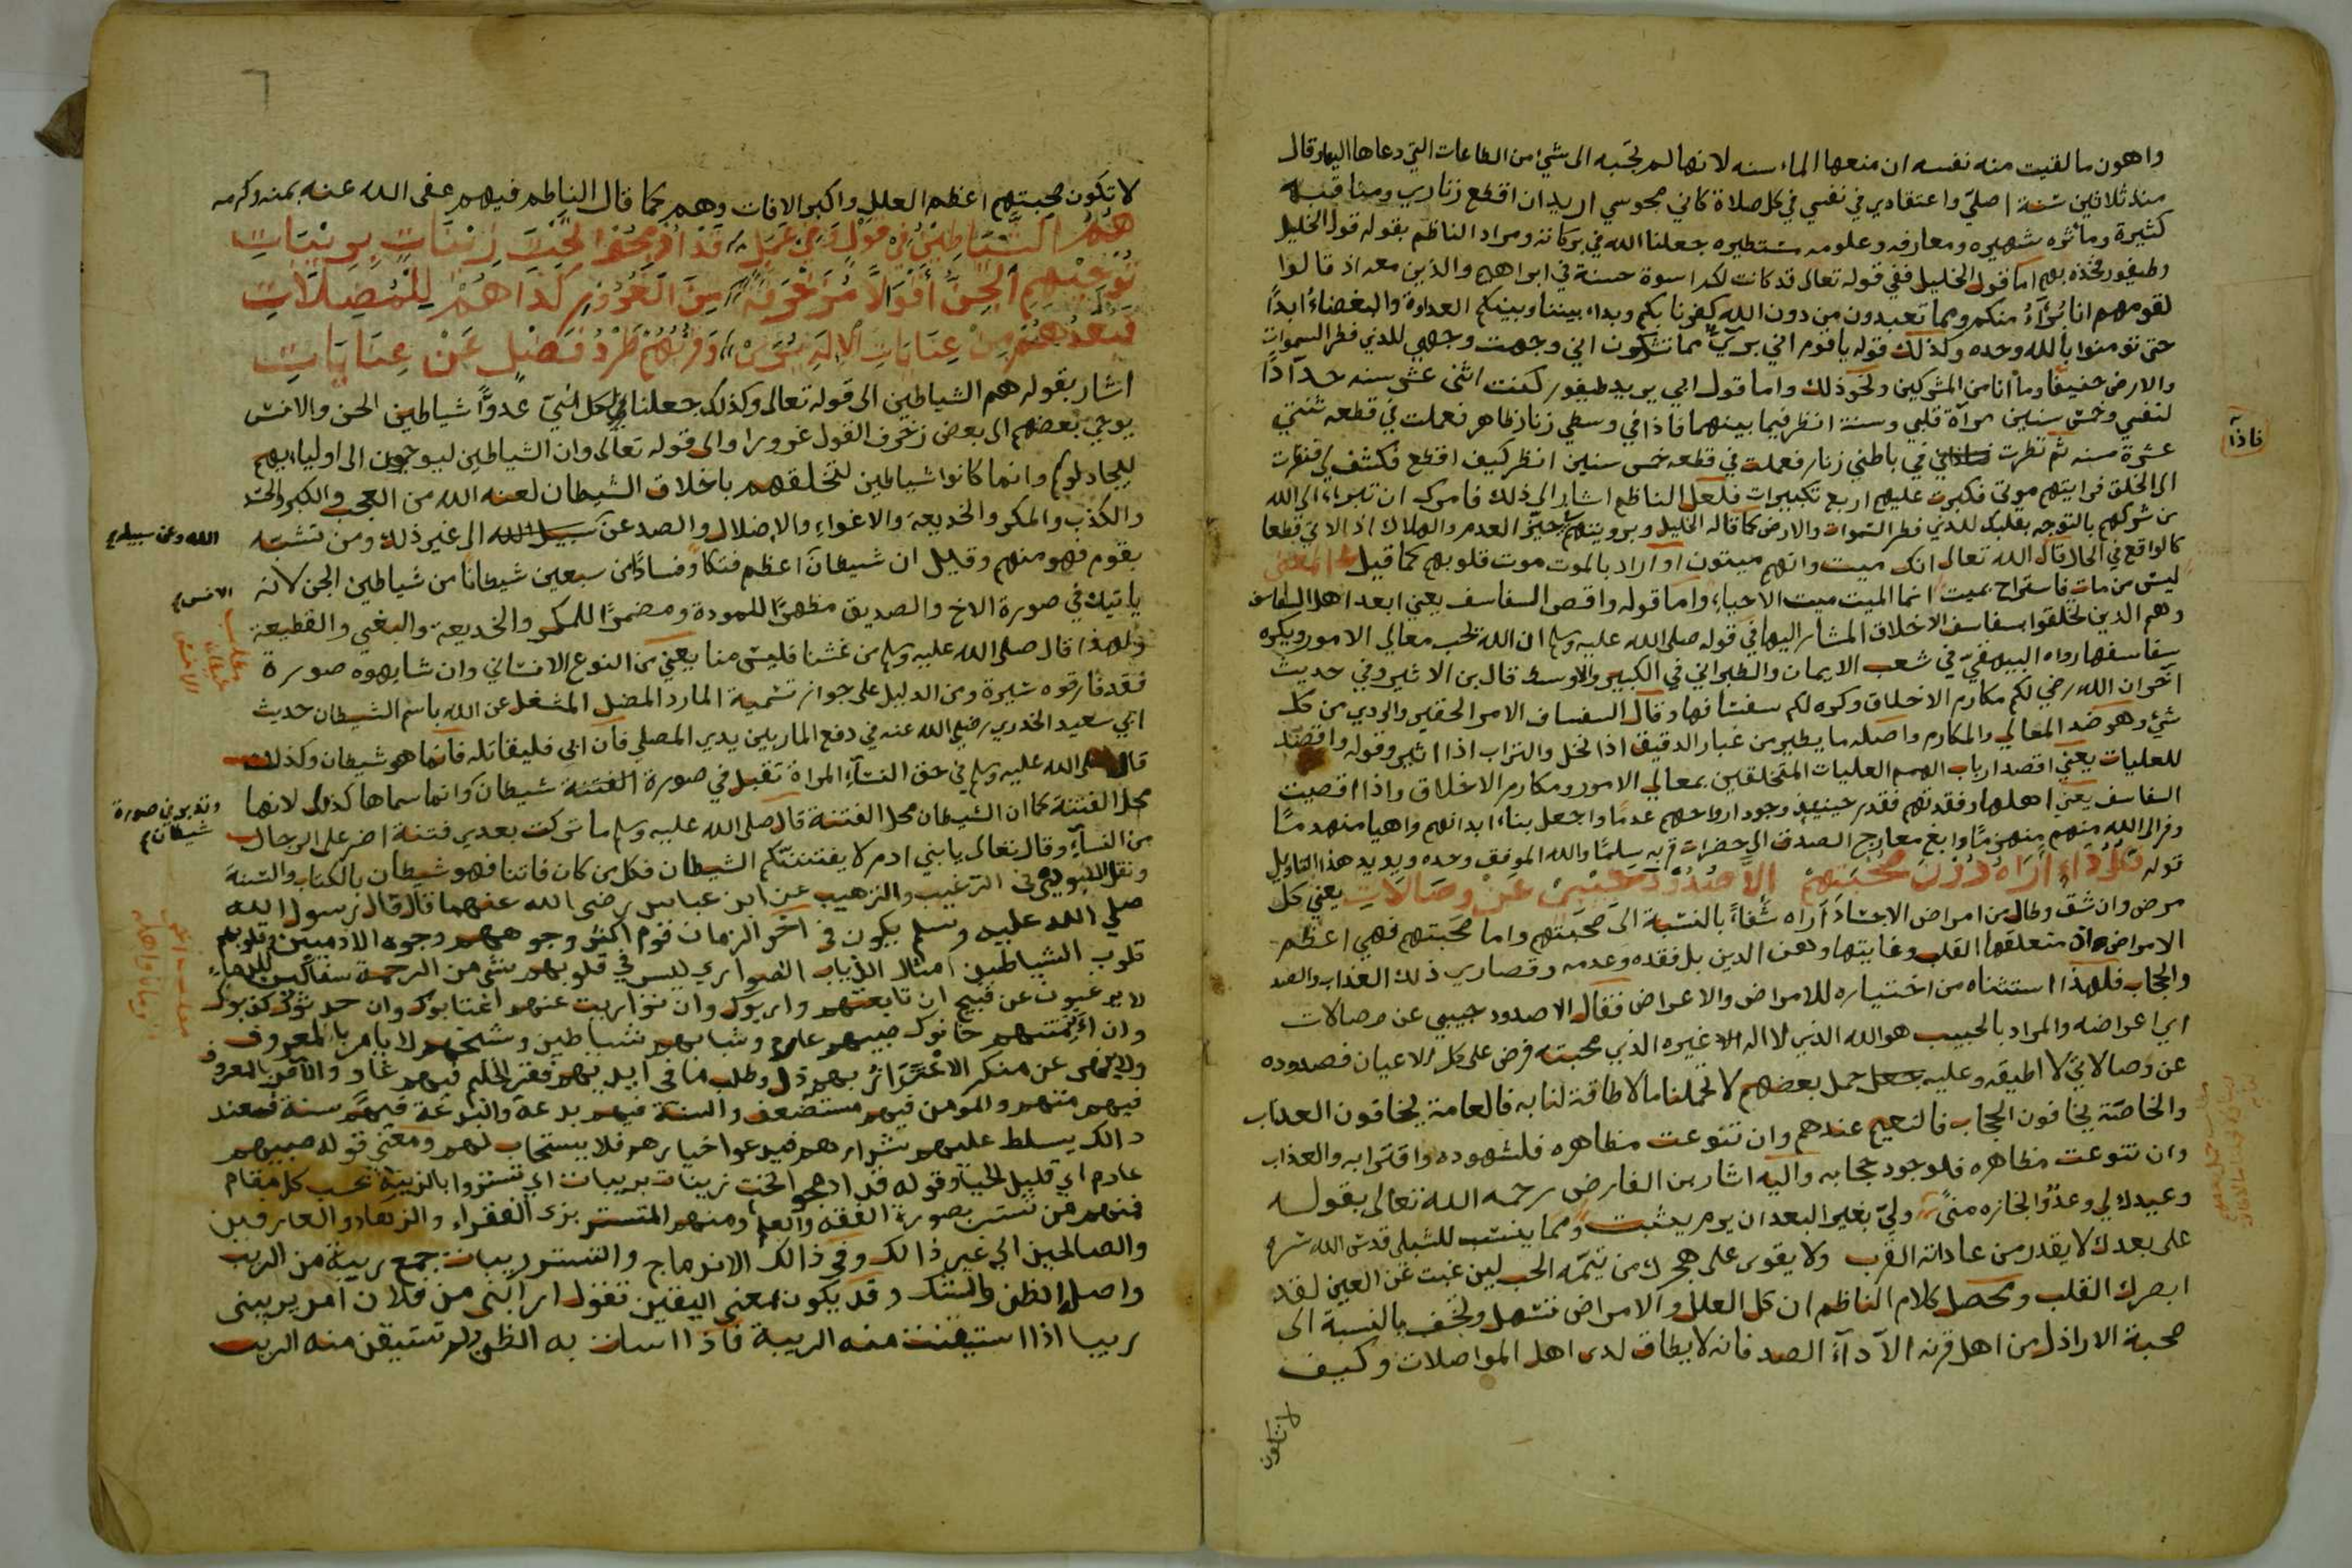 واهون ما لقيت منه نفسه ان منعها الماء سنه لانها لم تجبه الى شئ من الطاعات التي دعاها اليها وقال
منذ ثلاثين سنة اصلي واعتقادي في نفسي في كل صلاة كاني مجوسي اريد ان اقطع زناري ومناقبه
كثيرة ومأثره شهيره ومعارفه وعلومه مستطيره جعلنا الله في بركاته ومراد الناظم بقوله قول الخليل
وطيفور فخذه بهم اما قول الخليل ففي قوله تعالى قد كانت لكم اسوة حسنة في ابراهيم والذين معه اذ قالوا
لقومهم انا برآء منكم ومما تعبدون من دون الله كفرنا بكم وبدا بيننا وبينكم العداوة والبغضاء ابدا
حتى تومنوا بالله وحده وكذلك قوله يا قوم اني بريء مما تشركون اني وجهت وجهي للذي فطر السموات
والارض حنيفا وما انا من المشركين ونحو ذلك واما قول ابي يزيد طيفور كنت اثنى عشر سنه حدادا
لنفسي وخمس سنين مرآة قلبي وسنة انظر فيما بينهما فاذا في وسطي زنار ظاهر فعملت في قطعه ثنتي
عشرة سنه ثم نظرت في باطني زنار فعملت في قطعه خمس سنين انظر كيف اقطع فكشف لي فنظرت
الى الخلق فرايتهم موتى فكبرت عليهم اربع تكبيرات فلعل الناظم اشار الى ذلك فامرك ان تبراء الى الله
من شركهم بالتوجه بقلبك للذي فطر السموات والارض كما قاله الخليل وبرويتهم حيز العدم والهلاك اذ الاتي قطعا
كالواقع في الحال قال الله تعالى انك ميت وانهم ميتون او اراد بالموت موت قلوبهم كما قيل
ليس من مات فاستراح بميت انما الميت ميت الاحياء واما قوله واقص السفاسف يعني ابعد اهل السفاسف
وهم الذين تخلقوا بسفاسف الاخلاق المشار اليها في قوله صلى الله عليه وسلم ان الله يحب معالي الامور ويكره
سفاسفها رواه البيهقي في شعب الايمان والطبراني في الكبير والاوسط قال بن الاثير وفي حديث
آخر ان الله رضي لكم مكارم الاخلاق وكره لكم سفسافها وقال السفساف الامر الحقير والردي من كل
شئ وهو ضد المعالي والمكارم واصله ما يطير من غبار الدقيق اذا نخل والتراب اذا اثير وقوله واقصد
للعليات يعني اقصد ارباب الهمم العليات المتخلقين بمعالي الامور ومكارم الاخلاق واذا اقصيت
السفاسف يعني اهلها وفقدتهم فقدر حينئذ وجود ارواحهم عدما واجعل بناء ابدانهم واهيا منهدما
وفر الى الله منهم منهزما وابغ معارج الصدق الى حضرات قربه سلما والله الموفق وحده ويويد هذا التاويل
قوله فكل داء اراه دون محبتهم الا صدود حبيبي عن وصالات يعني كل
مرض وان شق وطال من امراض الاجساد اراه شفاءً بالنسبة الى صحبتهم واما صحبتهم فهي اعظم
الامراض اذ متعلقها القلب وغايتها وهن الدين بل فقده وعدمه وقصارى ذلك العذاب والصد
والحجاب فلهذا استثناه من اختياره للامراض والاعراض فقال الا صدود حبيبي عن وصالات
اي اعراضه والمراد بالحبيب هو الله الذي لا اله الا غيره الذي محبته فرض على كل الاعيان فصدوده
عن وصالاتي لا اطيقه وعليه حمل بعضهم لا تحملنا ما لا طاقة لنا به فالعامة يخافون العذاب
والخاصة يخافون الحجاب فالنعيم عندهم وان تنوعت مظاهره فلشهوده واقترابه والعذاب
وان تنوعت مظاهره فلوجود حجابه واليه اشار بن الفارض رحمه الله تعالى بقوله
وعيدك لي وعد وانجازه منى ولي بغير البعد ان يوم يثبت ومما ينسب للشبلي قدس الله سره
على بعدك لا يقدر من عاداته القرب ولا يقوى على هجرك من تيمه الحب لين غبت عن العين لقد
ابصرك القلب ومحصل كلام الناظم ان كل العلل والامراض تسهل وتخف بالنسبة الى
صحبة الاراذل من اهل قرنه الا دآء الصد فانه لا يطاق لدى اهل المواصلات وكيف
لا تكون
فاذا
لا تكون صحبتهم اعظم العلل واكبر الافات وهم كما قال الناظم فيهم عفى الله عنه بمنه وكرمه
هم الشياطين في قول وفي عمل قد ادمجوا الخبث زينات بريبات
توحيهم الجن اقوالا مزخرفة من الغرور كذا هم للمضلات
فبعدهم من عنايات الاله سرى وقربهم طرد فضل عن عنايات
اشار بقوله هم الشياطين الى قوله تعالى وكذلك جعلنا لكل نبي عدوًا شياطين الجن والانس
يوحي بعضهم الى بعض زخرف القول غرورا والى قوله تعالى وان الشياطين ليوحون الى اوليايهم
ليجادلوكم وانما كانوا شياطين لتخلقهم باخلاق الشيطان لعنه الله من العجب والكبر والحسد
والكذب والمكر والخديعة والاغواء والاضلال والصد عن سبيل الله الى غير ذلك ومن تشبه
بقوم فهو منهم وقيل ان شيطان اعظم فتكا وفسادا من سبعين شيطانا من شياطين الجن لانه
ياتيك في صورة الاخ والصديق مظهرا للمودة ومضمرا للمكر والخديعة والبغي والقطيعة
ولهذا قال صلى الله عليه وسلم من غشنا فليس منا يعني من النوع الانساني وان شابهوه صورة
فقد فارقوه سيرة ومن الدليل على جواز تسمية المارد المضل المشغل عن الله باسم الشيطان حديث
ابي سعيد الخدري رضي الله عنه في دفع المار بين يدي المصلي فان ابى فليقاتله فانما هو شيطان وكذلك
قال صلى الله عليه وسلم في حق النسآء المراة تقبل في صورة شيطان وانما سماها كذلك لانها
محل الفتنة كما ان الشيطان محل الفتنة قال صلى الله عليه وسلم ما تركت بعدي فتنة اضر على الرجال
من النسآء وقال تعالى يا بني ادم لا يفتننكم الشيطان فكل من كان فاتنا فهو شيطان بالكتاب والسنة
ونقل في الترغيب والترهيب عن ابن عباس رضي الله عنهما قال قال رسول الله
صلي الله عليه وسلم يكون في آخر الزمان قوم اكثر وجوههم وجوه الادميين وقلوبهم
قلوب الشياطين امثال الذياب الضواري ليس في قلوبهم شئ من الرحمة سفاكين للدماء
لا يرعوون عن قبيح ان تابعتهم واربوك وان تواريت عنهم اغتابوك وان حدثوك كذبوك
وان ائتمنتهم خانوك صبيهم عارم وشابهم شياطين وشيخهم لا يامر بالمعروف
ولا ينهى عن منكر الاعتزاز بهم ذل وطلب ما في ايديهم فقر الحليم فيهم غاو والآمر بالمعروف
فيهم متهم والمومن فيهم مستضعف والسنة فيهم بدعة والبدعة فيهم سنة فعند
ذالك يسلط عليهم شرارهم فيدعوا خيارهم فلا يستجاب لهم ومعنى قوله صبيهم
عارم اي قليل الحيآ وقوله قد ادمجوا الخبث زينات بريبات اي تستروا بالزينة بحسب كل مقام
فمنهم من تستر بصورة الفقه والعلم ومنهم المتستر بزى الفقراء والزهاد والعارفين
والصالحين الى غير ذالك وفي ذالك الاندماج والتستر ريبات جمع ريبة من الريب
واصل الظن والشك وقد يكون بمعنى اليقين تقول ارابنى من فلان امر يريبنى
ريبا اذا استيقنت منه الريبة فاذا اسات به الظن ولم تستيقن منه الريب
الله وعن سبيله
الانس
وتدبر في صورة
شيطان